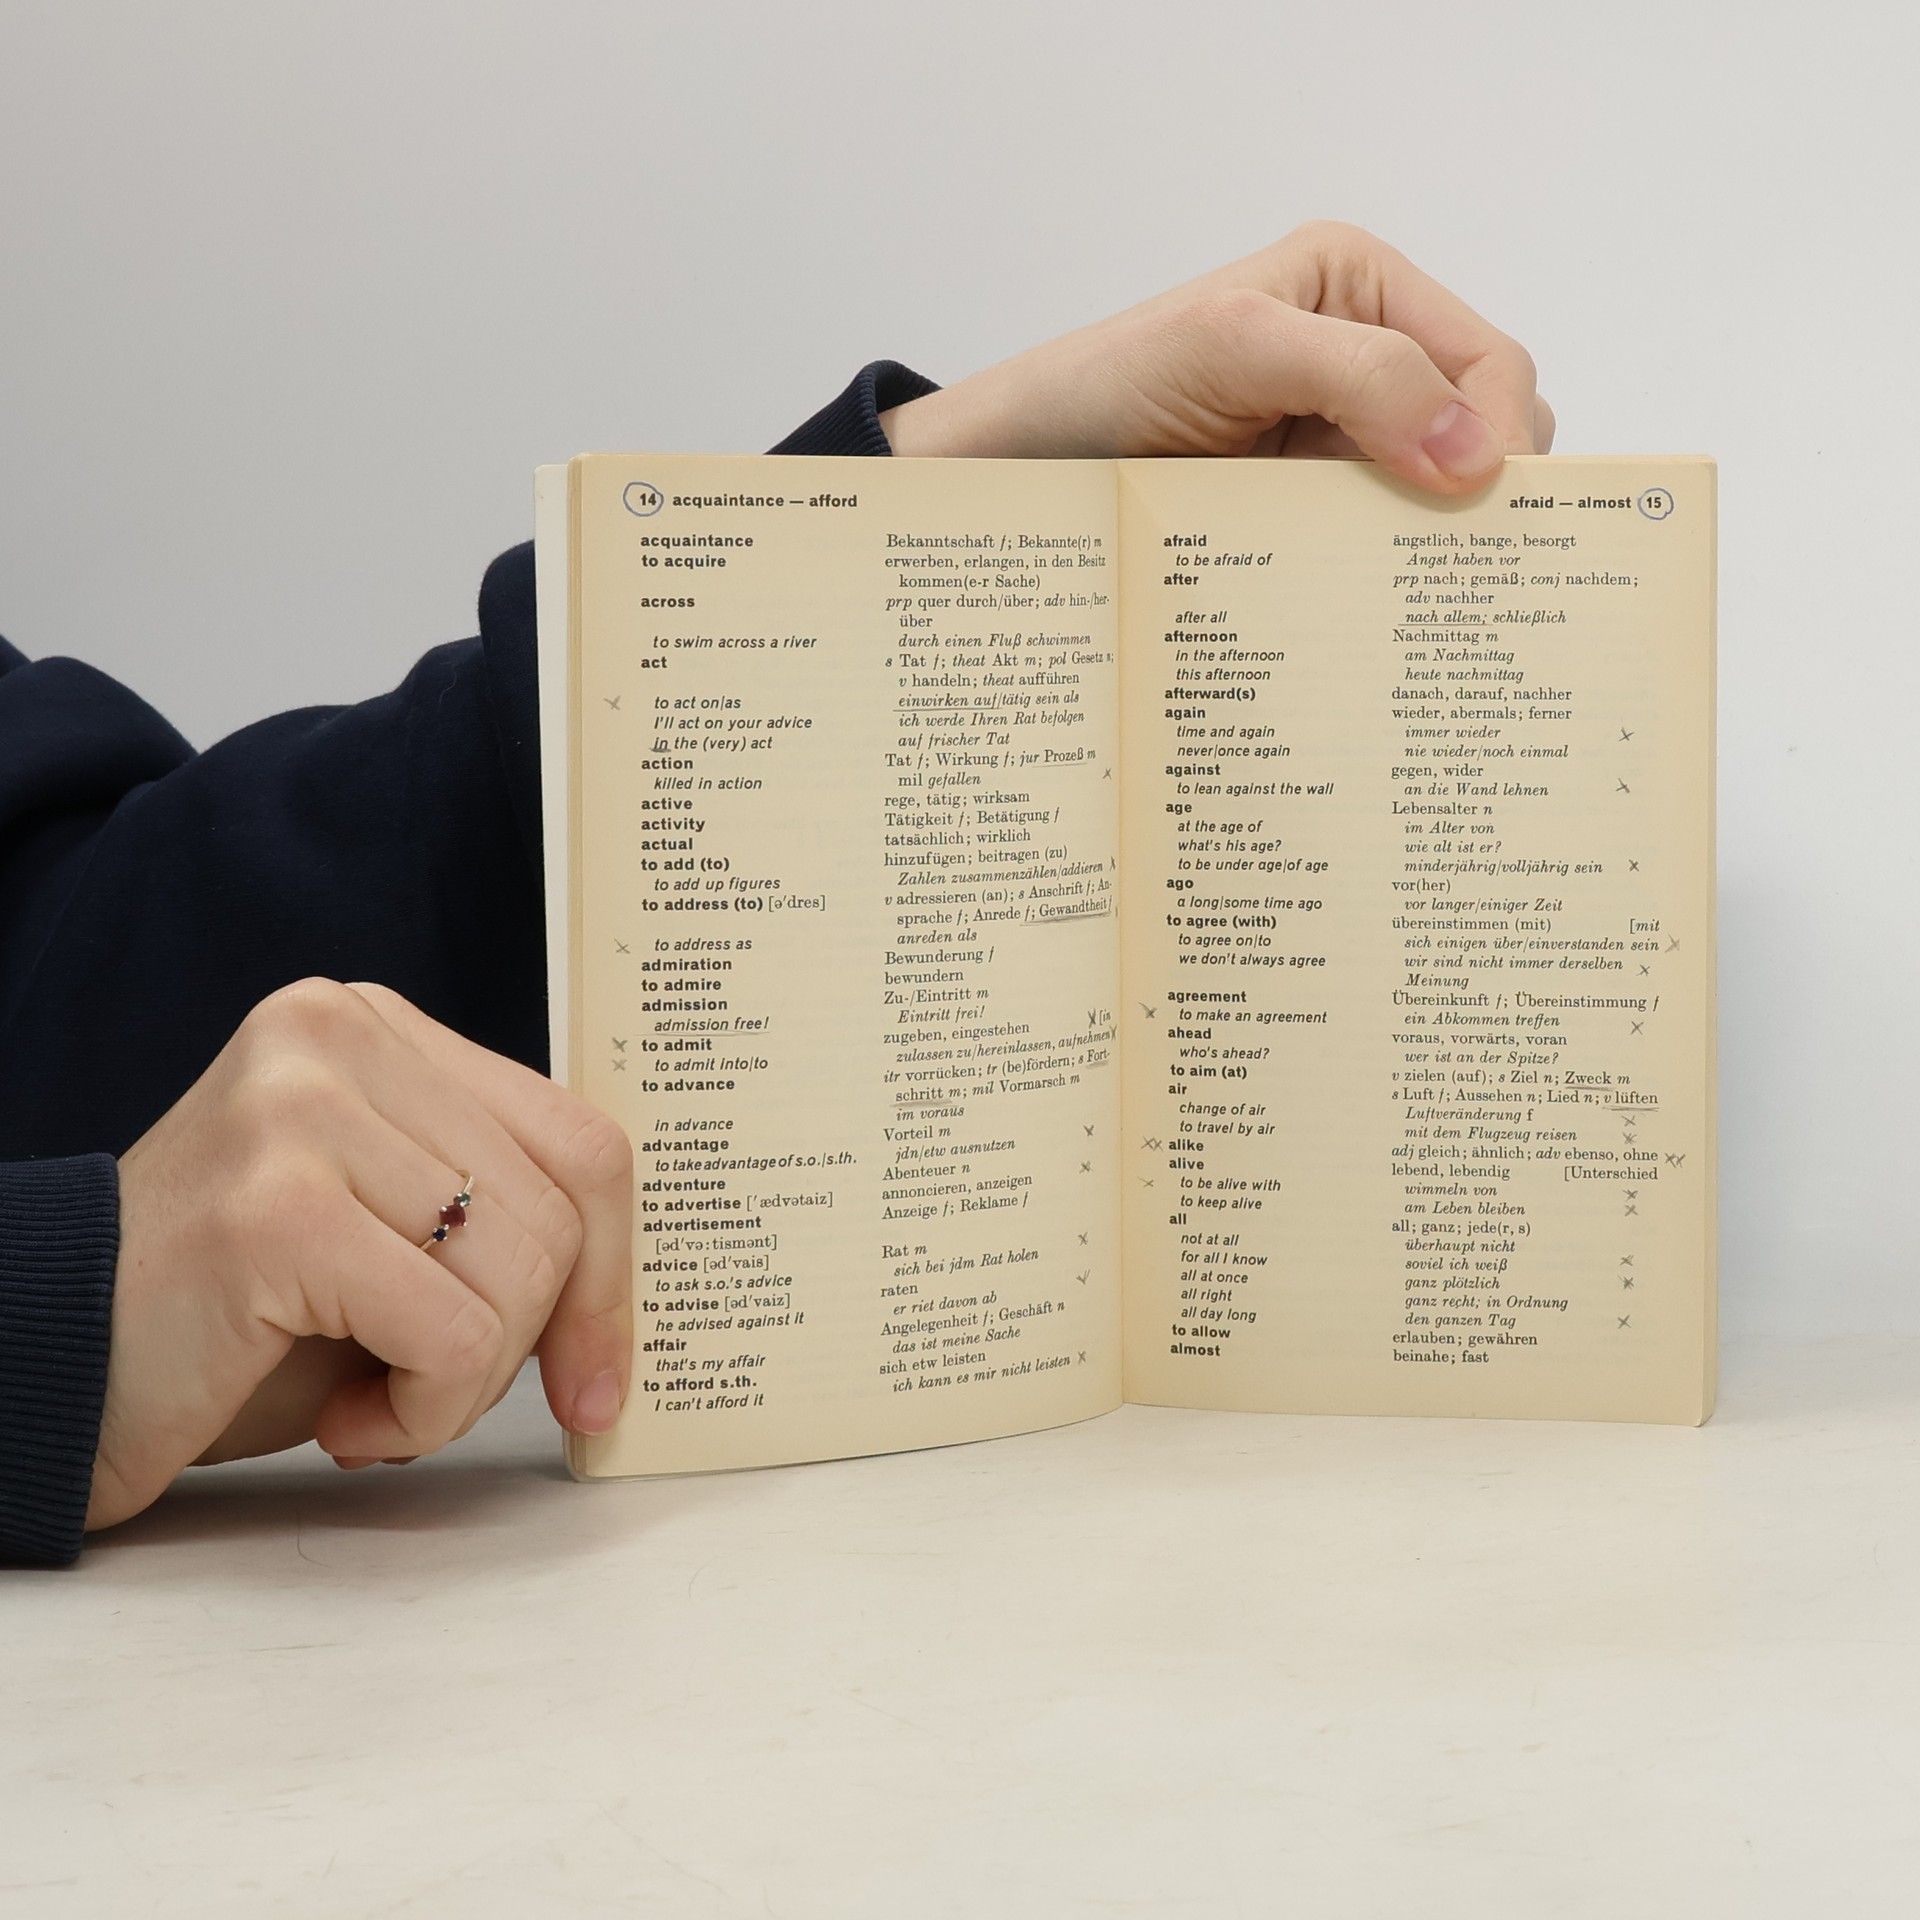 14 acquaintance — afford
acquaintance Bekanntschaft f; Bekannte(r) m
to acquire erwerben, erlangen, in den Besitz
kommen(e-r Sache)
across prp quer durch/über; adv hin-/her-
über
to swim across a river durch einen Fluß schwimmen
act s Tat f; theat Akt m; pol Gesetz n;
v handeln; theat aufführen
to act on|as einwirken auf/tätig sein als
I'll act on your advice ich werde Ihren Rat befolgen
in the (very) act auf frischer Tat
action Tat f; Wirkung f; jur Prozeß m
killed in action mil gefallen
active rege, tätig; wirksam
activity Tätigkeit f; Betätigung f
actual tatsächlich; wirklich
to add (to) hinzufügen; beitragen (zu)
to add up figures Zahlen zusammenzählen/addieren
to address (to) [ə'dres] v adressieren (an); s Anschrift f; An-
sprache f; Anrede f; Gewandtheit f
to address as anreden als
admiration Bewunderung f
to admire bewundern
admission Zu-/Eintritt m
admission free! Eintritt frei!
to admit zugeben, eingestehen [in
to admit into|to zulassen zu/hereinlassen, aufnehmen
to advance itr vorrücken; tr (be)fördern; s Fort-
schritt m; mil Vormarsch m
in advance im voraus
advantage Vorteil m
to take advantage of s.o.|s.th. jdn/etw ausnutzen
adventure Abenteuer n
to advertise ['ædvətaiz] annoncieren, anzeigen
advertisement Anzeige f; Reklame f
[əd'və:tismənt]
advice [əd'vais] Rat m
to ask s.o.'s advice sich bei jdm Rat holen
to advise [əd'vaiz] raten
he advised against it er riet davon ab
affair Angelegenheit f; Geschäft n
that's my affair das ist meine Sache
to afford s.th. sich etw leisten
I can't afford it ich kann es mir nicht leisten
afraid — almost 15
afraid ängstlich, bange, besorgt
to be afraid of Angst haben vor
after prp nach; gemäß; conj nachdem;
adv nachher
after all nach allem; schließlich
afternoon Nachmittag m
in the afternoon am Nachmittag
this afternoon heute nachmittag
afterward(s) danach, darauf, nachher
again wieder, abermals; ferner
time and again immer wieder
never|once again nie wieder/noch einmal
against gegen, wider
to lean against the wall an die Wand lehnen
age Lebensalter n
at the age of im Alter von
what's his age? wie alt ist er?
to be under age|of age minderjährig/volljährig sein
ago vor(her)
a long|some time ago vor langer/einiger Zeit
to agree (with) übereinstimmen (mit) [mit
to agree on|to sich einigen über/einverstanden sein
we don't always agree wir sind nicht immer derselben
Meinung
agreement Übereinkunft f; Übereinstimmung f
to make an agreement ein Abkommen treffen
ahead voraus, vorwärts, voran
who's ahead? wer ist an der Spitze?
to aim (at) v zielen (auf); s Ziel n; Zweck m
air s Luft f; Aussehen n; Lied n; v lüften
change of air Luftveränderung f
to travel by air mit dem Flugzeug reisen
alike adj gleich; ähnlich; adv ebenso, ohne
alive lebend, lebendig [Unterschied
to be alive with wimmeln von
to keep alive am Leben bleiben
all all; ganz; jede(r, s)
not at all überhaupt nicht
for all I know soviel ich weiß
all at once ganz plötzlich
all right ganz recht; in Ordnung
all day long den ganzen Tag
to allow erlauben; gewähren
almost beinahe; fast